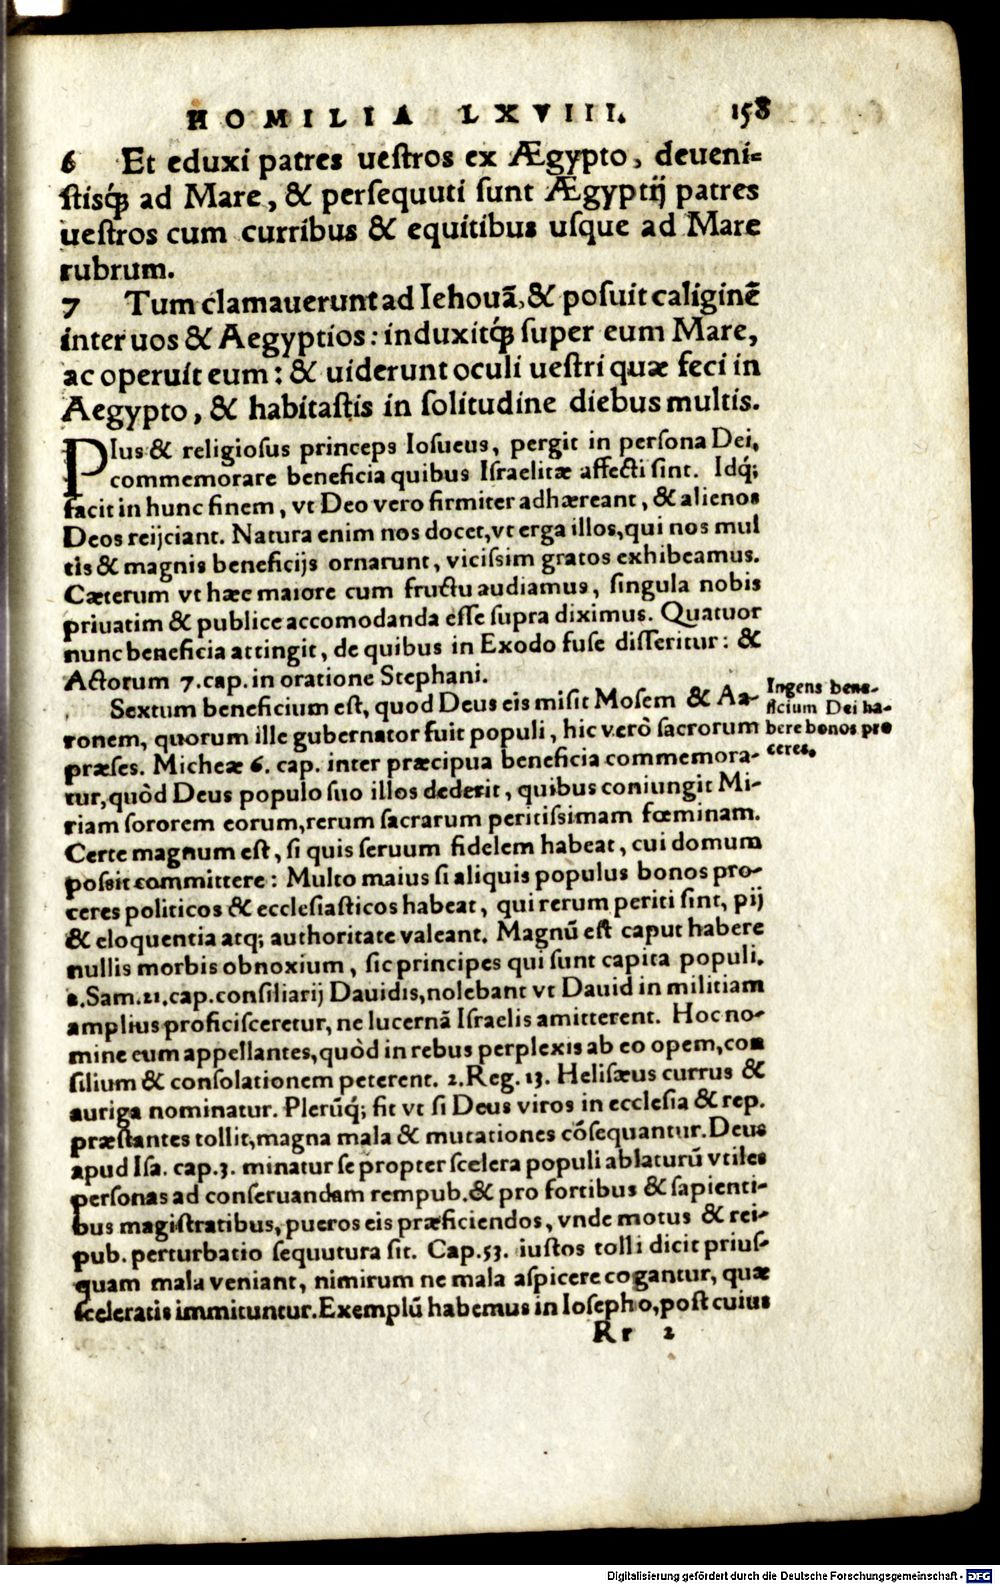 HOMILIA LXVIII. 158
6 Et eduxi patres uestros ex Ægypto, deueni=
stisq́ꝫ ad Mare, & persequuti sunt Ægyptij patres
uestros cum curribus & equitibus usque ad Mare
rubrum.
7 Tum clamauerunt ad Iehouã, & posuit caliginẽ
inter uos & Aegyptios: induxitq́ꝫ super eum Mare,
ac operuit eum: & uiderunt oculi uestri quæ feci in
Aegypto, & habitastis in solitudine diebus multis.
PIus & religiosus princeps Iosueus, pergit in persona Dei,
commemorare beneficia quibus Israelitæ affecti sint. Idq́;
facit in hunc finem, vt Deo vero firmiter adhæreant, & alienos
Deos reijciant. Natura enim nos docet, vt erga illos, qui nos mul
tis & magnis beneficijs ornarunt, vicissim gratos exhibeamus.
Cæterum vt hæc maiore cum fructu audiamus, singula nobis
priuatim & publice accomodanda esse supra diximus. Quatuor
nunc beneficia attingit, de quibus in Exodo fuse disseritur: &
Actorum 7. cap. in oratione Stephani.
Sextum beneficium est, quod Deus eis misit Mosem & Aa-
ronem, quorum ille gubernator fuit populi, hic verò sacrorum
præses. Micheæ 6. cap. inter præcipua beneficia commemora-
tur, quòd Deus populo suo illos dederit, quibus coniungit Mi-
riam sororem eorum, rerum sacrarum peritissimam fœminam.
Certe magnum est, si quis seruum fidelem habeat, cui domum
possit committere: Multo maius si aliquis populus bonos pro-
ceres politicos & ecclesiasticos habeat, qui rerum periti sint, pij
& eloquentia atq; authoritate valeant. Magnũ est caput habere
nullis morbis obnoxium, sic principes qui sunt capita populi.
2. Sam. 21. cap. consiliarij Dauidis, nolebant vt Dauid in militiam
amplius proficisceretur, ne lucernã Israelis amitterent. Hoc no-
mine eum appellantes, quòd in rebus perplexis ab eo opem, con
silium & consolationem peterent. 2. Reg. 13. Helisæus currus &
auriga nominatur. Plerũq́; fit vt si Deus viros in ecclesia & rep.
præstantes tollit, magna mala & mutationes cõsequantur. Deus
apud Isa. cap. 3. minatur se propter scelera populi ablaturũ vtiles
personas ad conseruandam rempub. & pro fortibus & sapienti-
bus magistratibus, pueros eis præficiendos, vnde motus & rei-
pub. perturbatio sequutura sit. Cap. 53. iustos tolli dicit prius-
quam mala veniant, nimirum ne mala aspicere cogantur, quæ
sceleratis immituntur. Exemplũ habemus in Iosepho, post cuius
Rr 2
Ingens bene-
ficium Dei ha-
bere bonos pro
ceres.
Digitalisierung gefördert durch die Deutsche Forschungsgemeinschaft - DFG